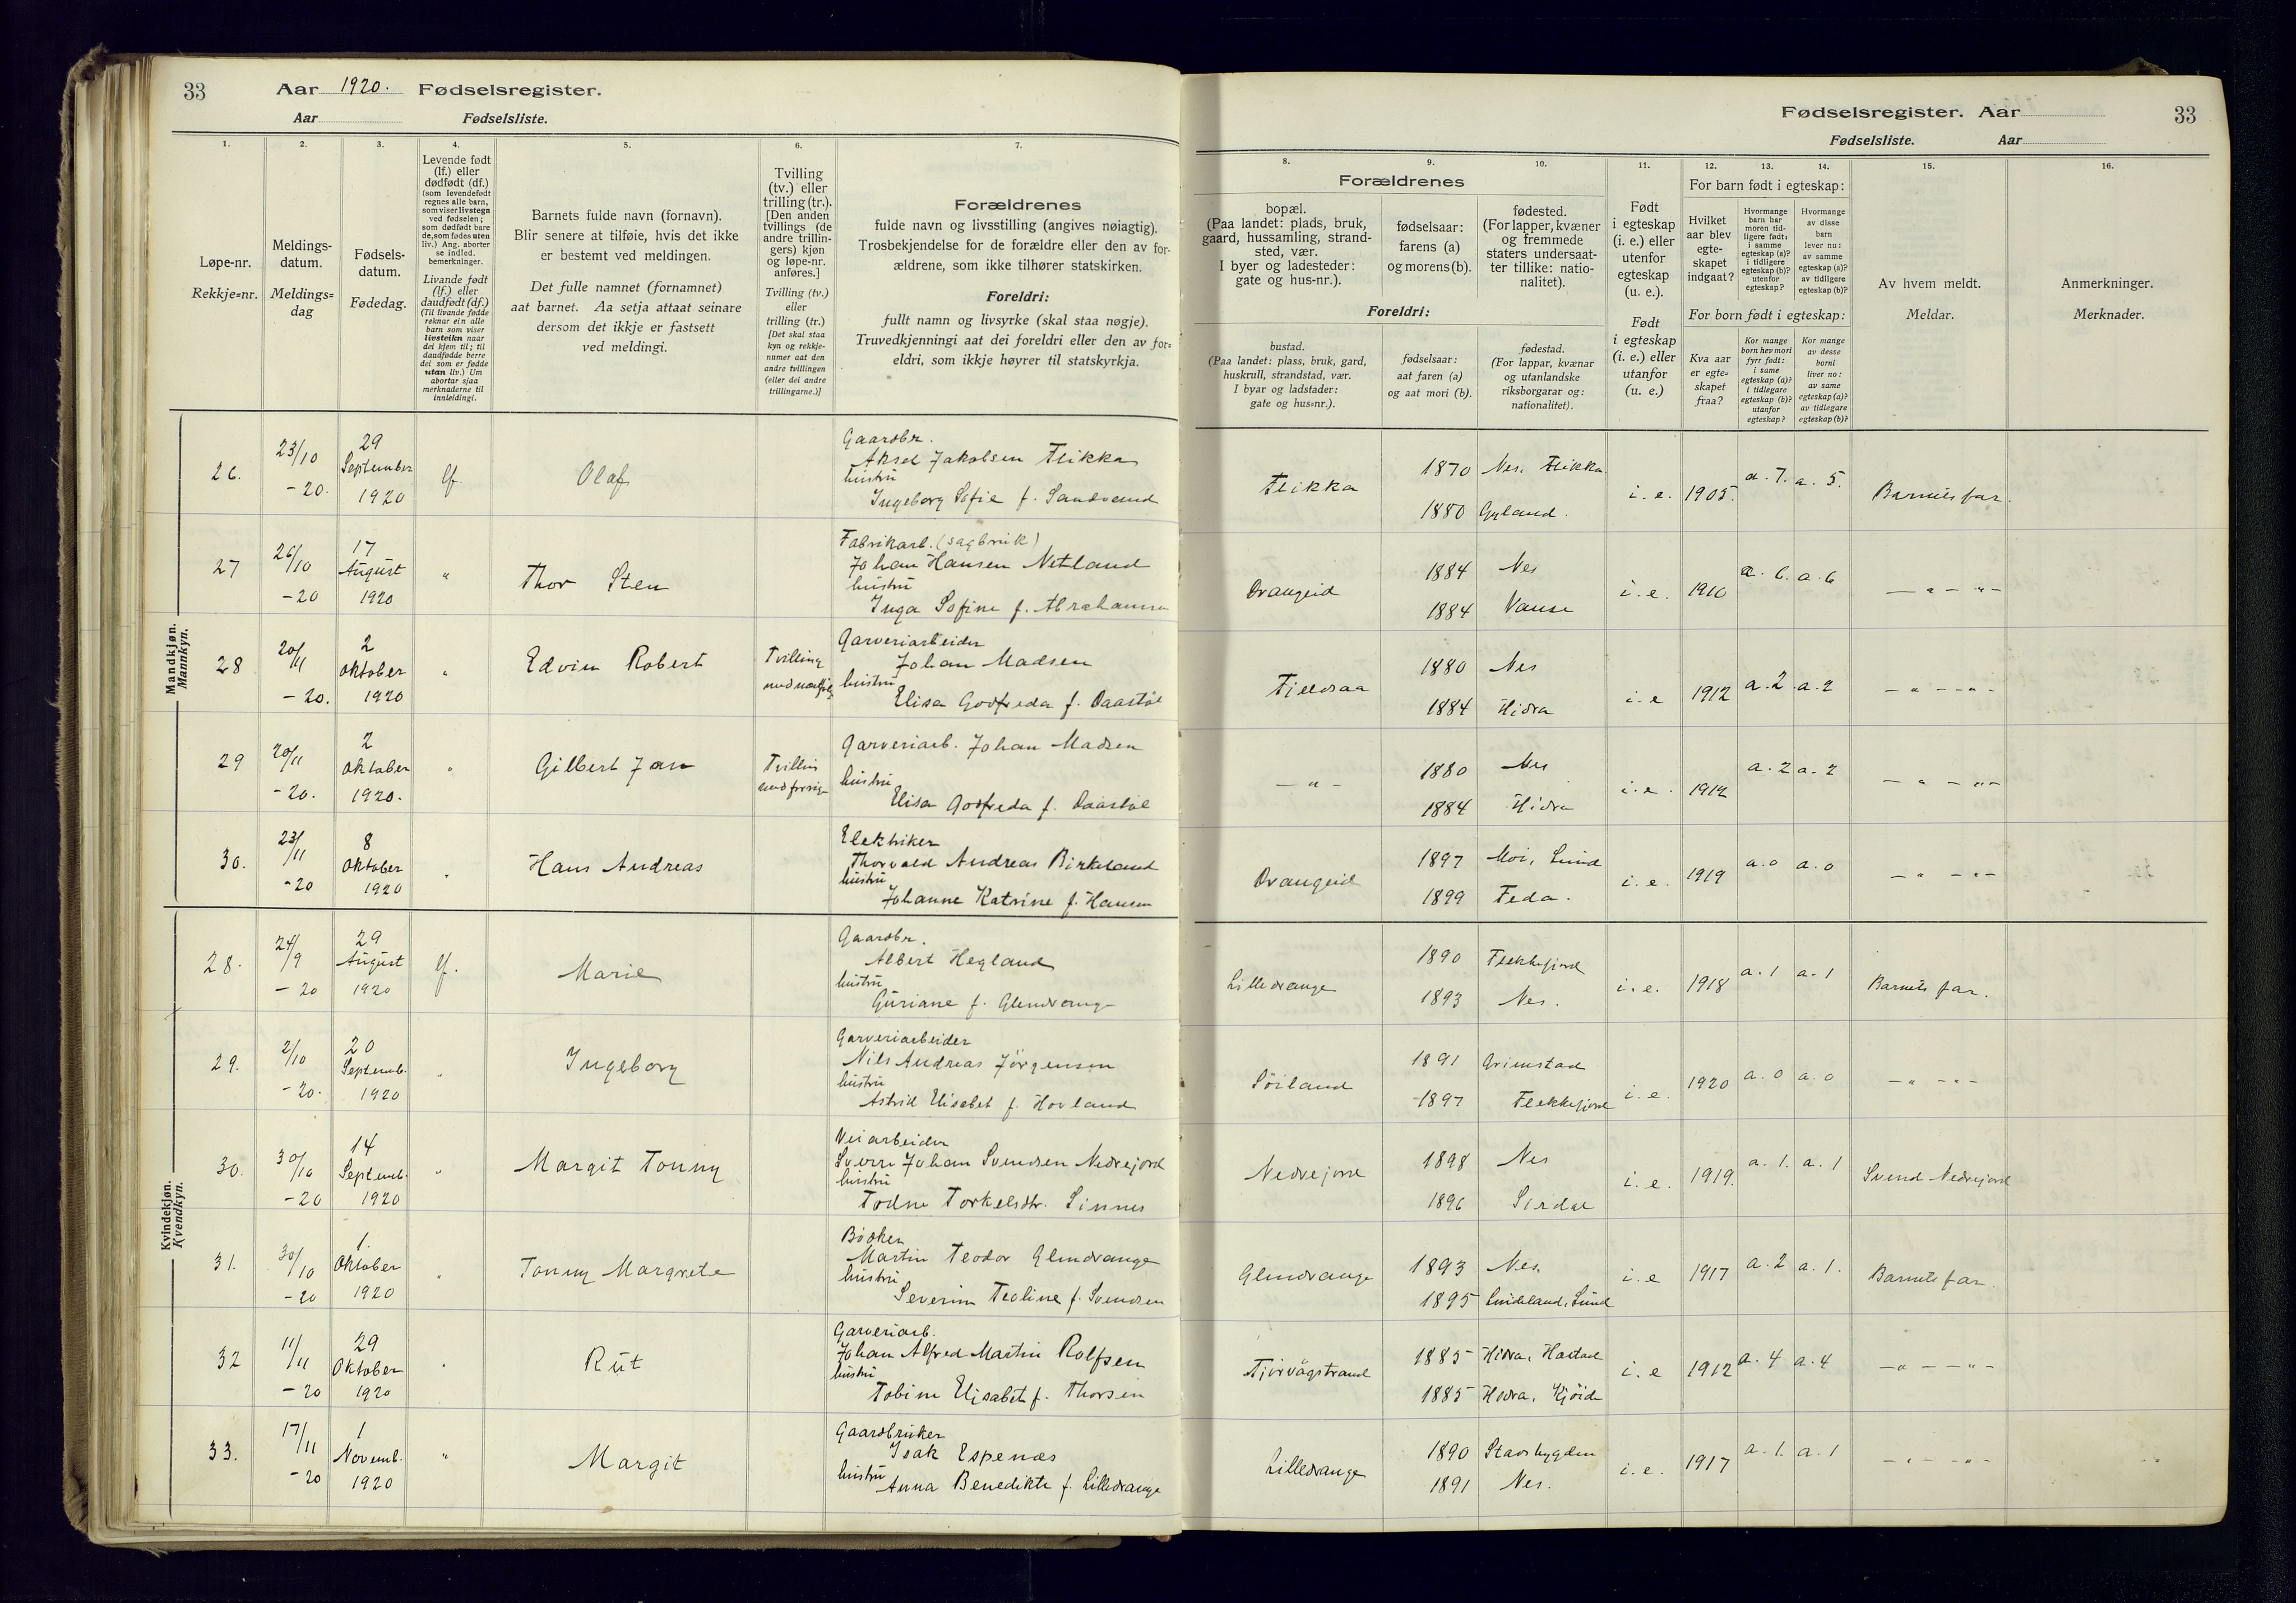 33
Aar 1920. Fødselsregister.
Aar Fødselsliste.
1.
2.
3.
4.
5.
6.
7.
Løpe-nr.
Rekkje=nr.
Meldings-
datum.
Meldings=
dag
Fødsels-
datum.
Fødedag.
Levende født
(lf.) eller
dødfødt (df.)
(som levendefødt
regnes alle barn,
som viser livstegn
ved fødselen;
som dødfødt bare
de, som fødes uten
liv.) Ang. aborter
se indled.
bemerkninger.
Livande født
(lf.) eller
daudfødt (df.)
(Til livande fødde
reknar ein alle
barn som viser
livsteikn naar
dei kjem til; til
daudfødde berre
dei som er fødde
utan liv.) Um
abortar sjaa
merknaderne til
innleidingi.
Barnets fulde navn (fornavn).
Blir senere at tilføie, hvis det ikke
er bestemt ved meldingen.
Det fulle namnet (fornamnet)
aat barnet. Aa setja attaat seinare
dersom det ikkje er fastsett
ved meldingi.
Tvilling
(tv.) eller
trilling (tr.).
[Den anden
tvillings (de
andre trillin-
gers) kjøn
og løpe-nr.
anføres.]
Tvilling (tv.)
eller
trilling (tr.)
[Det skal staa
kyn og rekkje-
numer aat den
andre tvillingen
(eller dei andre
trillingarne.)]
Forældrenes
fulde navn og livsstilling (angives nøiagtig).
Trosbekjendelse for de forældre eller den av for-
ældrene, som ikke tilhører statskirken.
Foreldri:
fullt namn og livsyrke (skal staa nøgje).
Truvedkjenningi aat dei foreldri eller den av for=
eldri, som ikkje høyrer til statskyrkja.
Mandkjøn.
Mannkyn.
26. 23/10 -20. 29 September 1920 lf. Olaf
Gaardbr.
Aksel Jakobsen Flikka
hustru
Ingeborg Sofie f. Sandvand
27 26/10 -20 17 August 1920 " Thor Sten
Fabrikarb. (sagbruk)
Johan Hansen Netland
hustru
Inga Sofine f. Abrahamsen
28 20/11 -20. 2 Oktober 1920 " Edvin Robert Tvilling
Garveriarbeider
Johan Madsen
hustru
Elisa Godfreda f. Daastøl
29 20/11 -20. 2 Oktober 1920. " Gilbert Jan Tvilling med forrige
Garveriarb. Johan Madsen
hustru
Elisa Godfreda f. Daastøl
30. 23/11 -20 8 Oktober 1920 " Hans Andreas
Elektriker
Thorvald Andreas Birkeland
hustru
Johanne Katrine f. Hansen
Kvindekjøn.
Kvendkyn.
28. 24/9 -20 29 August 1920 lf. Marie
Gaardbr.
Albert Hegland
hustru
Guriane f. Glendrange
29. 2/10 -20. 20 Septemb. 1920 " Ingeborg
Garveriarbeider
Nils Andreas Jörgensen
hustru
Astrid Elisabet f. Hovland
30. 30/10 -20 14 Septemb. 1920 " Margit Tonny
Veiarbeider
Sverre Johan Svendsen Nedrejord
hustru
Todne Torkelsdtr. Sinnes
31. 30/10 -20 1. Oktober 1920 " Tonny Margrete
Bödker
Martin Teodor Glendrange
hustru
Severine Teoline f. Svendsen
32 11/11 -20 29 Oktober 1920 " Rut
Garveriarb.
Johan Alfred Martin Rolfsen
hustru
Tobine Elisabet f. Thorsen
33. 17/11 -20 1 Novemb. 1920 " Margit
Gaardbruker
Isak Espenæs
hustru
Anna Benedikte f. Lilledrange
Fødselsregister. Aar 33
Fødselsliste. Aar
8.
9.
10.
11.
12.
13.
14.
15.
16.
Forældrenes
bopæl.
(Paa landet: plads, bruk,
gaard, hussamling, strand-
sted, vær.
I byer og ladesteder:
gate og hus-nr.).
fødselsaar:
farens (a)
og morens (b).
fødested.
(For lapper, kvæner
og fremmede
staters undersaat-
ter tillike: natio-
nalitet).
Foreldri:
bustad.
(Paa landet: plass, bruk, gard,
huskrull, strandstad, vær.
I byar og ladstader:
gate og hus=nr.).
fødselsaar:
aat faren (a)
og aat mori (b).
fødestad.
(For lappar, kvænar
og utanlandske
riksborgarar og:
nationalitet).
Født
i egteskap
(i. e.) eller
utenfor
egteskap
(u. e.).
Født
i egteskap
(i. e.) eller
utanfor
(u. e.)
For barn født i egteskap:
Hvilket
aar blev
egte-
skapet
indgaat?
Hvormange
barn har
moren tid-
ligere født:
i samme
egteskap (a)?
i tidligere
egteskap (b)?
utenfor
egteskap?
Hvormange
av disse
barn
lever nu:
av samme
egteskap (a)?
av tidligere
egteskap (b)?
For born født i egteskap:
Kva aar
er egte=
skapet
fraa?
Kor mange
born hev mori
fyrr født:
i same
egteskap (a)?
i tidlegare
egteskap (b)?
utanfor
egteskap?
Kor mange
av desse
borni
liver no:
av same
egteskap (a)?
av tidlegare
egteskap (b)?
Av hvem meldt.
Meldar.
Anmerkninger.
Merknader.
Flikka 1870 Nes. Flikka i. e. 1905. a. 7. a. 5. Barnets far.
1880 Gyland.
Drangeid 1884 Nes i. e. 1910 a. 6. a. 6 — " — " —
1884 Vanse
Fjeldsaa 1880 Nes i. e 1912 a. 2 a. 2 — " — " —
1884 Hidra
— " — 1880 Nes i. e. 1912 a. 2 a. 2 — " — " —
1884 Hidra
Drangeid 1897 Moi, Lund i. e. 1919 a. 0 a. 0 — " — " —
1899 Feda.
Lilledrange 1890 Flekkefjord i. e. 1918 a. 1 a. 1 Barnets far.
1893 Nes.
Söiland 1891 Grimstad i. e. 1920 a. 0 a. 0 — " — " —
1897 Flekkefjord
Nedrejord 1898 Nes i. e. 1919. a. 1. a. 1 Svend Nedrejord
1896 Sirdal
Glendrange 1893 Nes. i. e 1917 a. 2 a. 1. Barnets far.
1895 Lindeland, Lund
Tjörvågstrand 1885 Hidra, i. e 1912 a. 4 a. 4 — " — " —
1885 Hidra,
Lilledrange 1890 Stavsbygden i. e. 1917 a. 1. a. 1 — " — " —
1891 Nes.